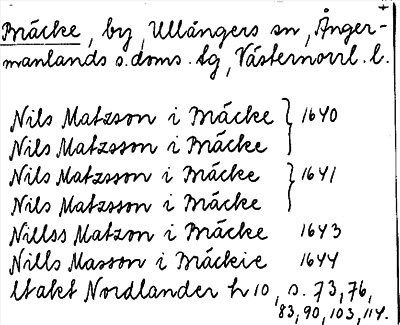 Bräcke, by, Ullångers sn, Ånger-
manlands s. doms. tg, Västernorrl. l.
Nils Matzson i Bräcke } 1640
Nils Matzsson i Bräcke
Nils Matzsson i Bräcke } 1641
Nils Matzsson i Bräcke
Nillss Matzon i Bräcke 1643
Nills Masson i Bräckie 1644
Utakt Nordlander h 10, s. 73, 76,
83, 90, 103, 114.